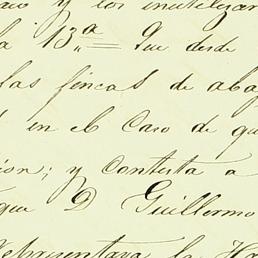 y los inutilizar
la 13ª Que desde
las fincas de aba
en el Caso de qu
ion; y Contesta a
que D Guillermo
Representara la H